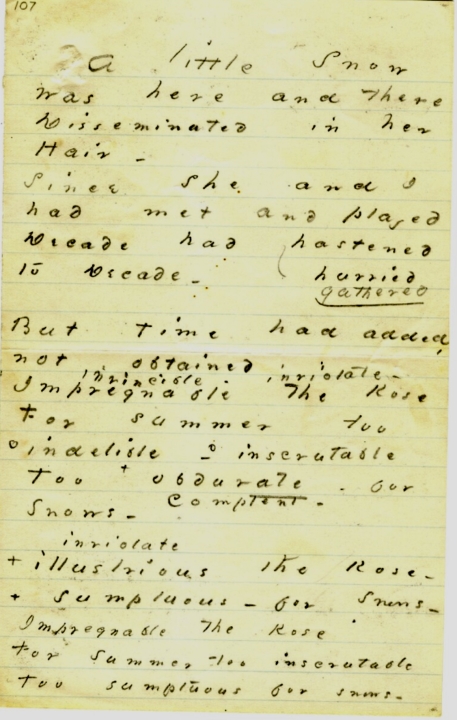 107
A little Snow
was here and there
Disseminated in her
Hair -
Since she and I
had met and played
Decade had hastened
to Decade - hurried
gathered
But Time had added,
not obtained
invincible inviolate -
Impregnable the Rose
For summer too
indelible inscrutable
Too + obdurate - for
Complent -
Snows -
inviolate
+ illustrious the Rose -
+ sumptuous - for Snows -
Impregnable the Rose
For summer too inscrutable
Too sumptuous for snows -